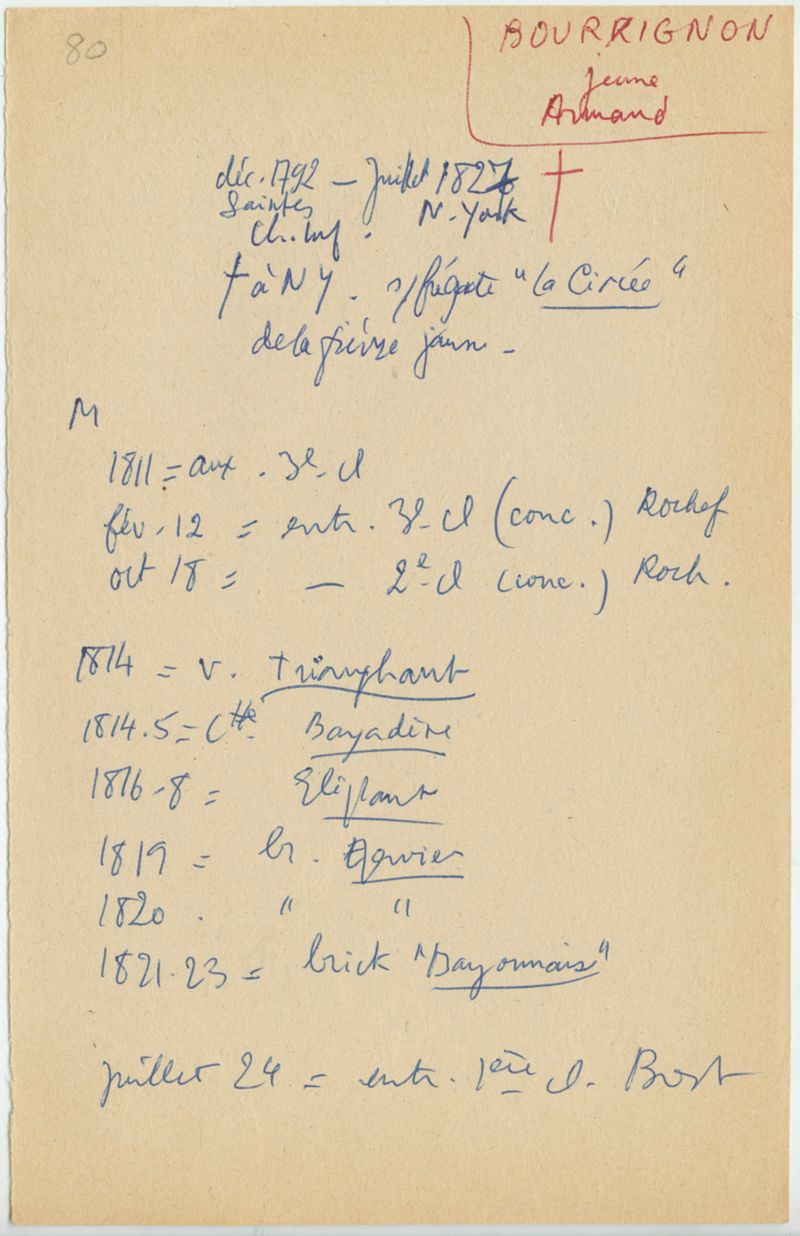 80
BOURRIGNON
jeune
Armand
déc. 1792 – Juillet 1827
Saintes N-York
Ch. Inf.
† à NY. s/frégate "La Circée"
de la fièvre jaune -
M
1811 = aux. 3e cl
fév. 12 = entr. 3e cl (conc.) Rochef
oct 18 = — 2e cl (conc.) Roch.
1814 = v. Triomphant
1814.5 = Ctte Bayadère
1816-8 = Eléphant
1819 = br.
1820. " "
1821.23 = brick "Bayonnais"
juillet 24 = entr. 1ère cl. Brest